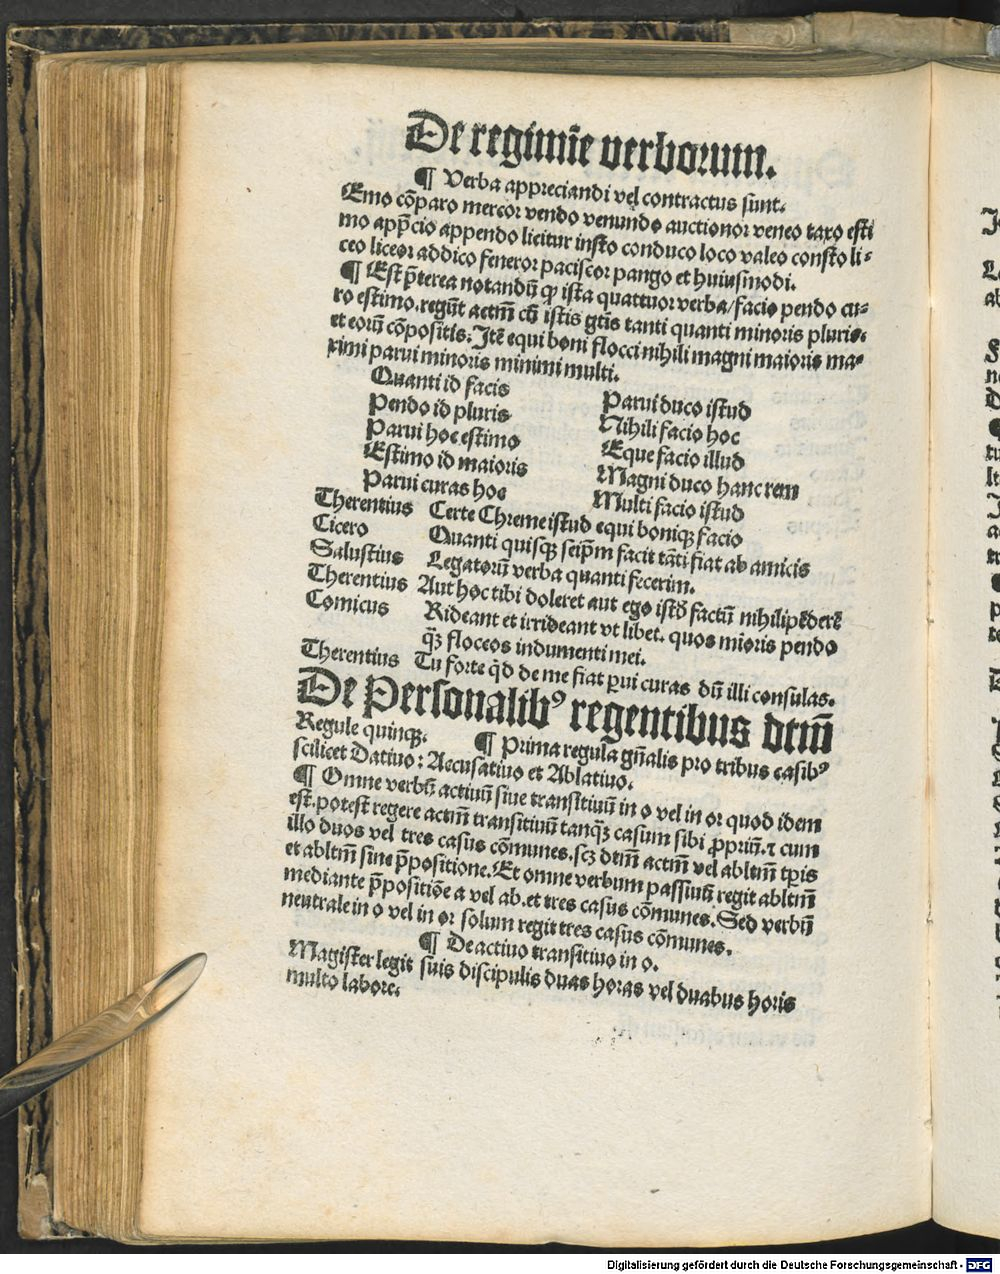 De regimīe verborum.
¶ Verba appreciandi vel contractus sunt.
Emo cōparo mercor vendo venundo auctionor veneo taxo esti
mo app̄cio appendo licitur insto conduco loco valeo consto li⸗
ceo liceor addico feneror paciscor pango et huiusmodi.
¶ Est p̄terea notandū ꝙ ista quattuor verba/facio pendo cu⸗
ro estimo.regūt actm̄ cū istis gtīs tanti quanti minoris pluris.
et eorū cōpositis: Itē equi boni flocci nihili magni maioris ma⸗
ximi parui minoris minimi multi.
Quanti id facis
Pendo id pluris
Parui hoc estimo
Estimo id maioris
Parui curas hoc
Parui duco istud
Nihili facio hoc
Eque facio illud
Magni duco hanc rem
Multi facio istud
Therentius Certe Chreme istud equi boniqꝫ facio
Cicero Quanti quisqꝫ seip̄m facit tāti fiat ab amicis
Salustius Legatorū verba quanti fecerim.
Therentius Aut hoc tibi doleret aut ego istd̄ factū nihilipēderē
Comicus Rideant et irrideant vt libet. quos mioris pendo
qꝫ̄ floccos indumenti mei.
Therentius Tu forte qd̄ de me fiat ꝑui curas dū illi consulas.
De Personalibꝰ regentibus dtm̄
Regule quinqꝫ. ¶ Prima regula gn̄alis pro tribus casibꝰ
scilicet Datiuo: Accusatiuo et Ablatiuo.
¶ Omne verbū actiuū siue transitiuū in o vel in or quod idem
est.potest regere actm̄ transitiuū tanqꝫ̄ casum sibi ꝓpriū.⁊ cum
illo duos vel tres casus cōmunes.scꝫ dtm̄ actm̄ vel abltm̄ tꝑis
et abltm̄ sine p̄positione.Et omne verbum passiuū regit abltm̄
mediante p̄positiōe a vel ab.et tres casus cōmunes.Sed verbū
neutrale in o vel in or solum regit tres casus cōmunes.
¶ De actiuo transitiuo in o.
Magister legit suis discipulis duas horas vel duabus horis
multo labore.
Digitalisierung gefördert durch die Deutsche Forschungsgemeinschaft - DFG